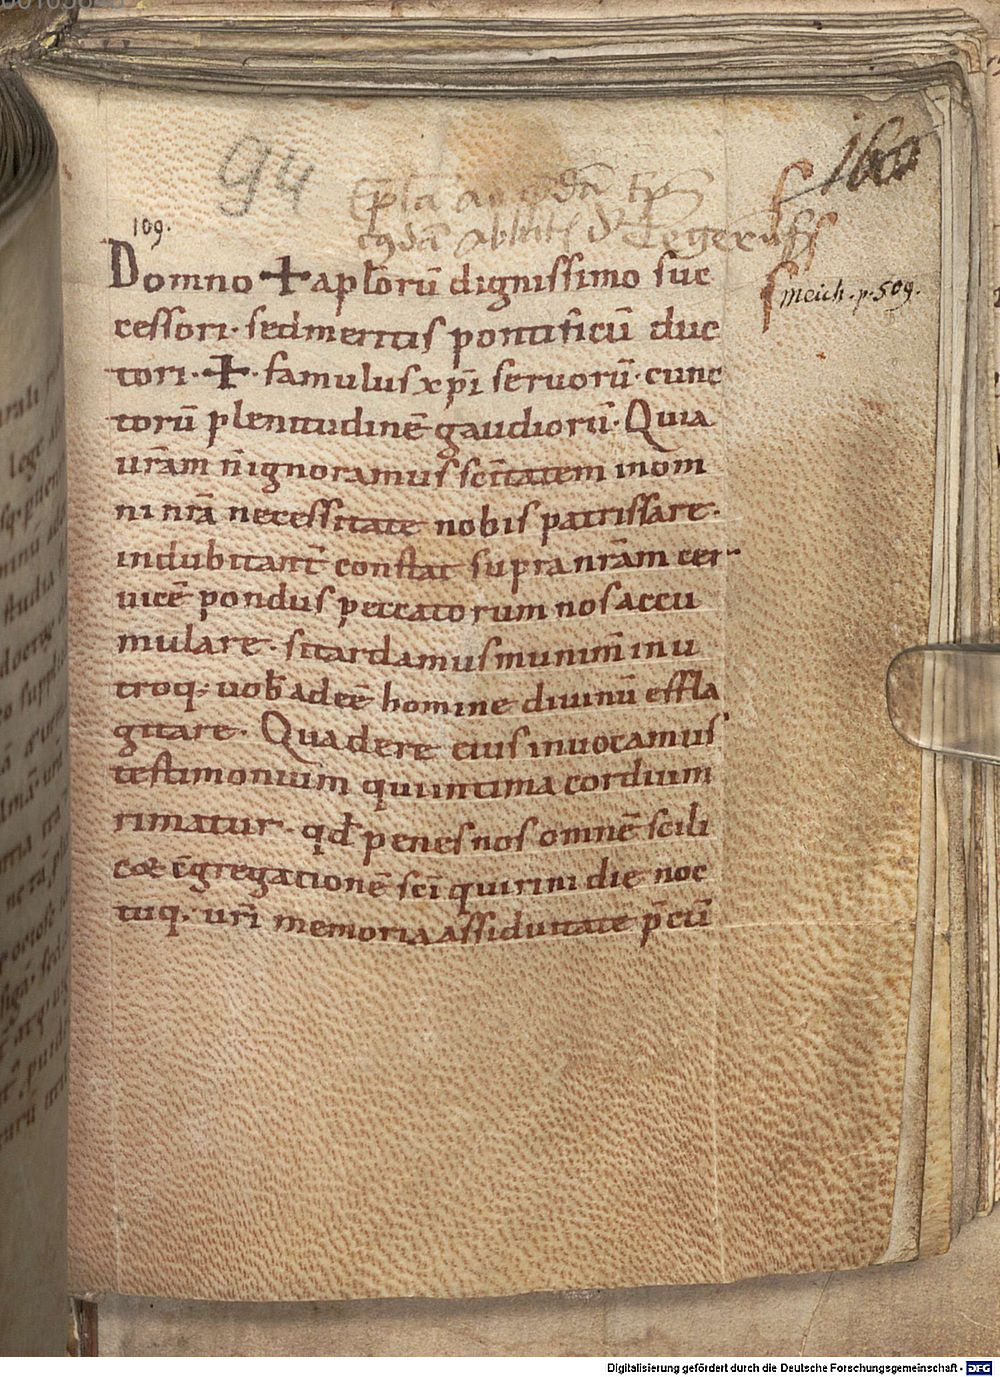 94
160
Ep̄la ad q̄dā Ep̄m
cuiꝰdā Abbatis d' Tegernse
109.
meich. p. 509.
Domno ✝ apl̄orū dignissimo suc
cessori· sed meritis pontificū duc
tori· ✝ · famulus xp̄i seruorū· cunc
torū plenitudinē gaudiorū· Quia
ur̄am n̄ ignoramus sc̄itatem in om
ni nr̄a necessitate nobis patrissare·
indubitant̄ constat supra nr̄am cer
uicē pondus peccatorum nos accu
mulare· si tardamus munim̄ in u
troq; uob̄ adeē homine diuinū effla
gitare· Qua de re eius inuocamus
testimonium qui intima cordium
rimatur· qd̄ penes nos omnē scili
cet c̄gregationē sc̄i quirini die noc
tuq· ur̄i memoria assiduitate p̄cū
Digitalisierung gefördert durch die Deutsche Forschungsgemeinschaft - DFG